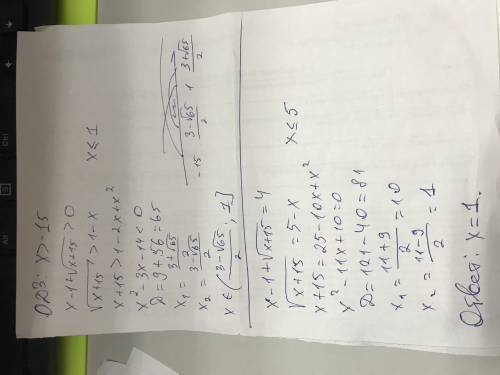 ОДЗ: x > -15
x-1+√x+15 > 0
√x+15 > 1-x   x ≤ 1
x+15 > 1-2x+x²
x²-3x-14 < 0
D = 9+56 = 65
x₁ = (3+√65)/2
x₂ = (3-√65)/2
-15   (3-√65)/2   1   (3+√65)/2
x ∈ ((3-√65)/2; 1]
x-1+√x+15 = 4
√x+15 = 5-x   x ≤ 5
x+15 = 25-10x+x²
x²-11x+10=0
D = 121-40 = 81
x₁ = (11+9)/2 = 10
x₂ = (11-9)/2 = 1
Ответ: x=1.
Alt
Ctrl